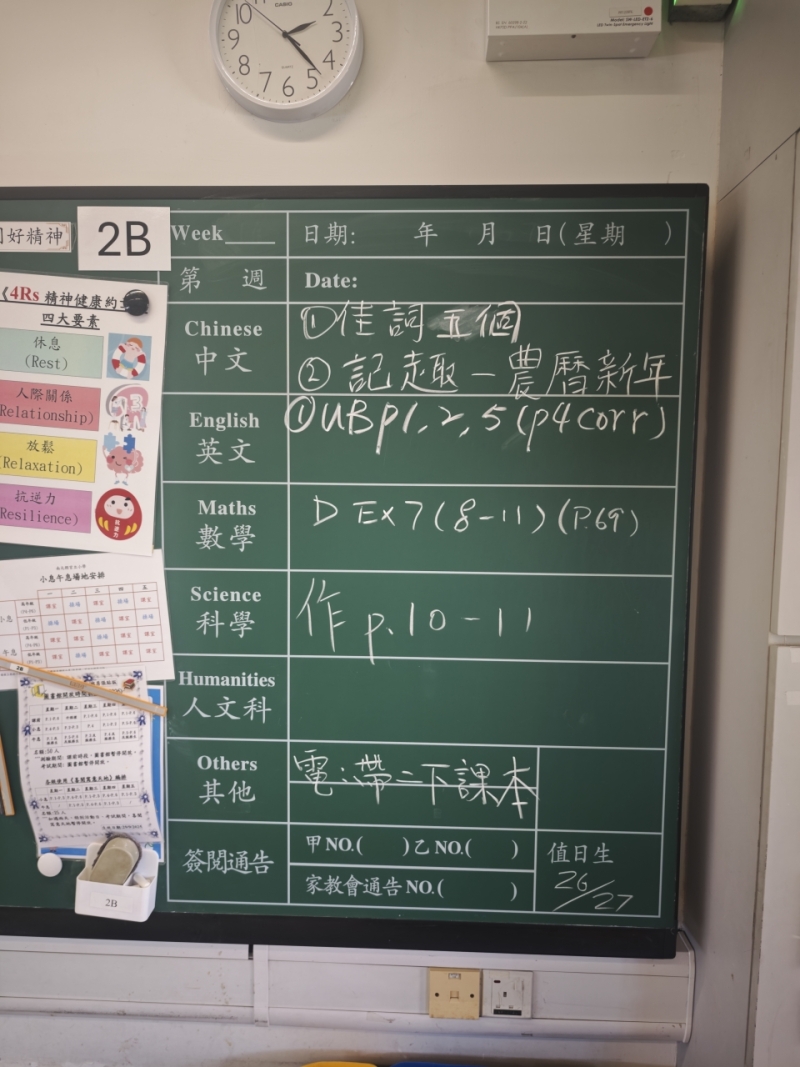 10
2
3
9
4
8
7 6 5
CASIO
好精神
2B
Week____
第 週
日期: 年 月 日(星期 )
Date:
Chinese
中文
①佳詞五個
②記趣-農曆新年
English
英文
①UBp1,2,5(p4corr)
Maths
數學
D Ex7(8-11)(P.69)
Science
科學
作 p.10-11
Humanities
人文科
Others
其他
電:帶二下課本
簽閱通告
甲NO.( )乙NO.( )
家教會通告NO.( )
值日生
26/27
《4Rs 精神健康約
四大要素
休息
(Rest)
人際關係
Relationship)
放鬆
(Relaxation)
抗逆力
Resilience)
小息午息場地安排
一 二 三 四 五
2B